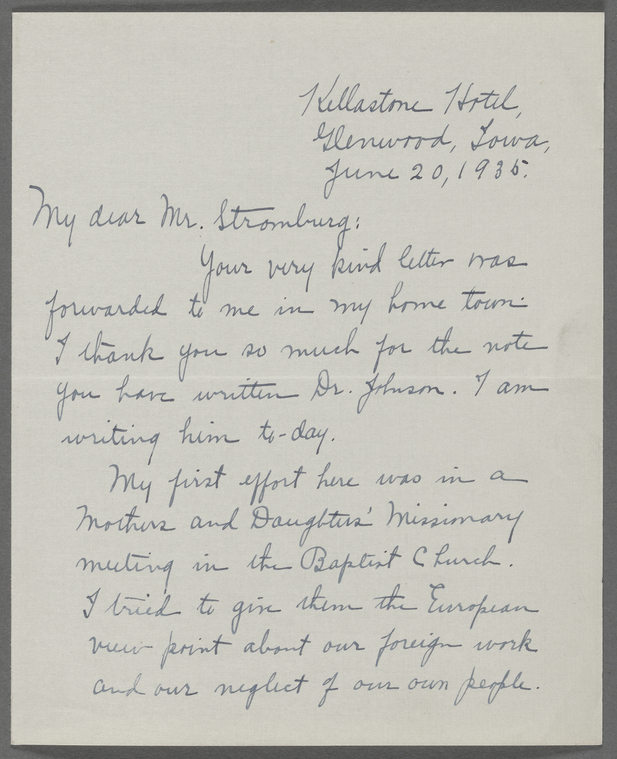 Kellastone Hotel,
Glenwood, Iowa,
June 20, 1935.
My dear Mr. Stromburg:
Your very kind letter was
forwarded to me in my home town.
I thank you so much for the note
you have written Dr. Johnson. I am
writing him to-day.
My first effort here was in a
Mothers and Daughters' Missionary
meeting in the Baptist Church.
I tried to give them the European
view point about our foreign work
and our neglect of our own people.